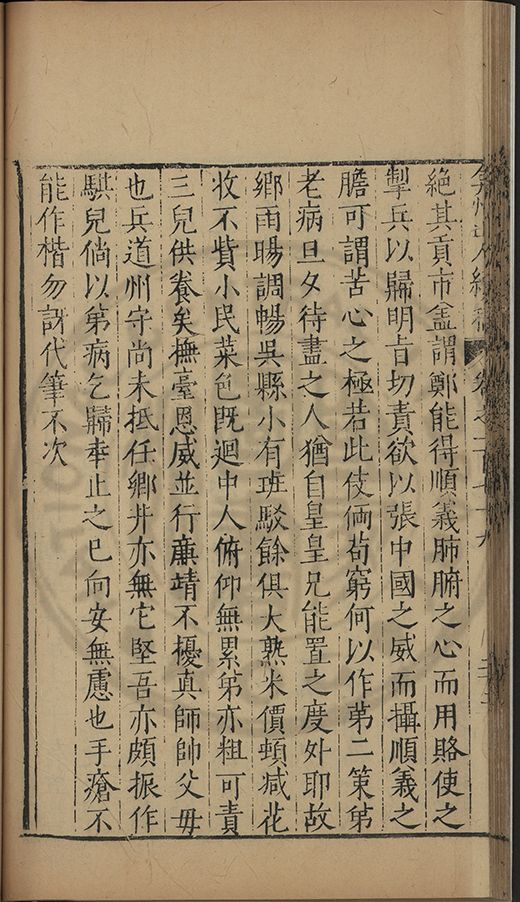 弇州山人續稿 卷之一百七十九
絶其貢市盖謂鄭能得順義肺腑之心而用賂使之
掣兵以歸明㫖切責欲以張中國之威而攝順義之
膽可謂苦心之極若此伎倆茍窮何以作苐二策苐
老病旦夕待盡之人猶自皇皇兄能置之度外耶故
鄉雨暘調暢吳縣小有班駁餘俱大熟米價頓减花
收不貲小民菜色既迴中人俯仰無累苐亦粗可責
三兒供養矣撫臺恩威並行亷靖不擾真師帥父母
也兵道州守尚未抵任鄉井亦無它堅吾亦頗振作
騏兒倘以苐病乞歸幸止之已向安無慮也手瘡不
能作楷勿訝代筆不次